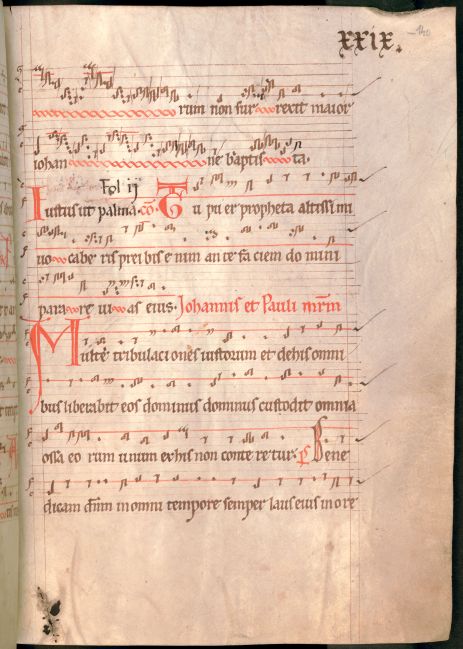 xxix.
140
rum non sur rexit maior
iohan ne baptis ta.
Fol ij
Iustus ut palma. co. Tu pu er propheta altissi mi
uo cabe ris prei bis e nim an te fa ciem do mini
para re ui as eius. Johannis et Pauli mrm
Multe tribulaci ones iustorum et dehis omni
bus liberabit eos dominus dominus custodit omnia
ossa eo rum unum exhis non conte re tur. p Bene
dicam dnm in omni tempore semper laus eius in ore